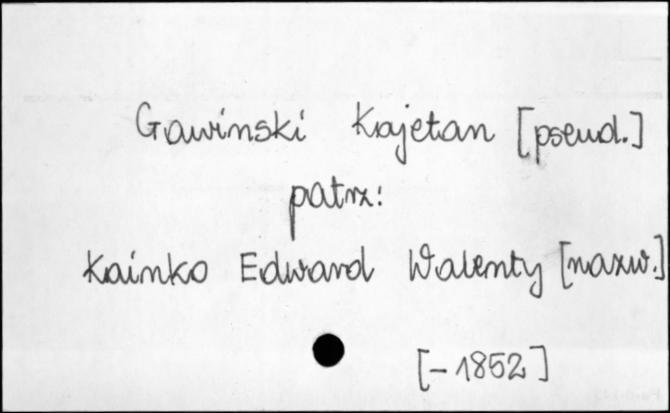 Gawinski Kajetan [pseud.]
patrz:
Kainko Edward Walenty [nazw.]
[-1852]